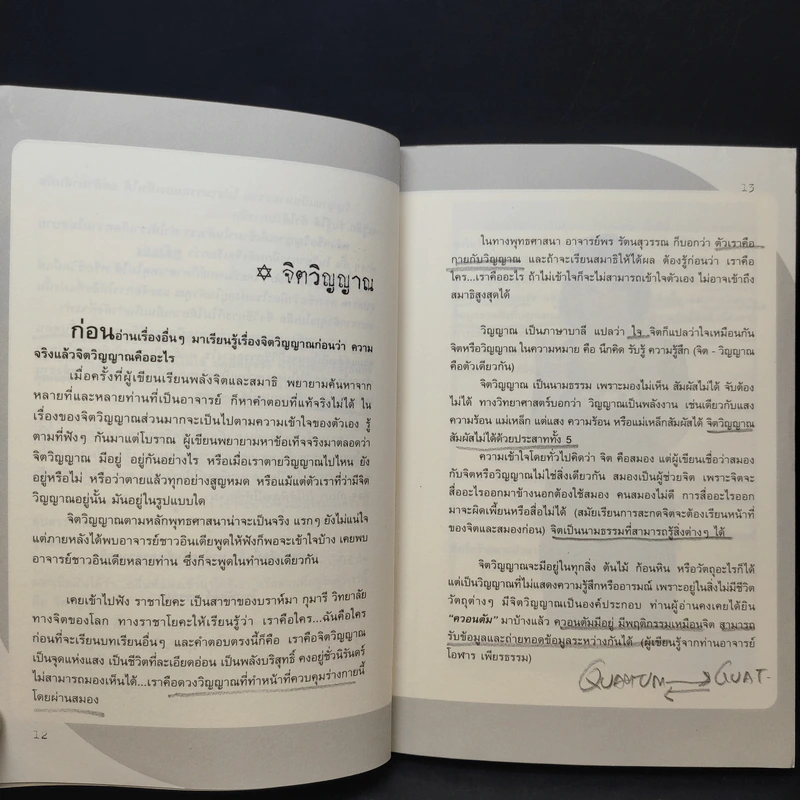 ✡ จิตวิญญาณ
ก่อนอ่านเรื่องอื่นๆ มาเรียนรู้เรื่องจิตวิญญาณก่อนว่า ความ
จริงแล้วจิตวิญญาณคืออะไร
เมื่อครั้งที่ผู้เขียนเรียนพลังจิตและสมาธิ พยายามค้นหาจาก
หลายที่และหลายท่านที่เป็นอาจารย์ ก็หาคำตอบที่แท้จริงไม่ได้ ใน
เรื่องของจิตวิญญาณส่วนมากจะเป็นไปตามความเข้าใจของตัวเอง รู้
ตามที่ฟังๆ กันมาแต่โบราณ ผู้เขียนพยายามหาข้อเท็จจริงมาตลอดว่า
จิตวิญญาณ มีอยู่ อยู่กันอย่างไร หรือเมื่อเราตายวิญญาณไปไหน ยัง
อยู่หรือไม่ หรือว่าตายแล้วทุกอย่างสูญหมด หรือแม้แต่ตัวเราที่ว่ามีจิต
วิญญาณอยู่นั้น มันอยู่ในรูปแบบใด
จิตวิญญาณตามหลักพุทธศาสนาน่าจะเป็นจริง แรกๆ ยังไม่แน่ใจ
แต่ภายหลังได้พบอาจารย์ชาวอินเดียพูดให้ฟังก็พอจะเข้าใจบ้าง เคยพบ
อาจารย์ชาวอินเดียหลายท่าน ซึ่งก็จะพูดในทำนองเดียวกัน
เคยเข้าไปฟัง ราชาโยคะ เป็นสาขาของบราห์มา กุมารี วิทยาลัย
ทางจิตของโลก ทางราชาโยคะให้เรียนรู้ว่า เราคือใคร...ฉันคือใคร
ก่อนที่จะเรียนบทเรียนอื่นๆ และคำตอบตรงนี้ก็คือ เราคือจิตวิญญาณ
เป็นจุดแห่งแสง เป็นชีวิตที่ละเอียดอ่อน เป็นพลังบริสุทธิ์ คงอยู่ชั่วนิรันดร์
ไม่สามารถมองเห็นได้...เราคือดวงวิญญาณที่ทำหน้าที่ควบคุมร่างกายนี้
โดยผ่านสมอง
12
13
ในทางพุทธศาสนา อาจารย์พร รัตนสุวรรณ ก็บอกว่า ตัวเราคือ
กายกับวิญญาณ และถ้าจะเรียนสมาธิให้ได้ผล ต้องรู้ก่อนว่า เราคือ
ใคร...เราคืออะไร ถ้าไม่เข้าใจก็จะไม่สามารถเข้าใจตัวเอง ไม่อาจเข้าถึง
สมาธิสูงสุดได้
วิญญาณ เป็นภาษาบาลี แปลว่า ใจ จิตก็แปลว่าใจเหมือนกัน
จิตหรือวิญญาณ ในความหมาย คือ นึกคิด รับรู้ ความรู้สึก (จิต - วิญญาณ
คือตัวเดียวกัน)
จิตวิญญาณ เป็นนามธรรม เพราะมองไม่เห็น สัมผัสไม่ได้ จับต้อง
ไม่ได้ ทางวิทยาศาสตร์บอกว่า วิญญาณเป็นพลังงาน เช่นเดียวกับแสง
ความร้อน แม่เหล็ก แต่แสง ความร้อน หรือแม่เหล็กสัมผัสได้ จิตวิญญาณ
สัมผัสไม่ได้ด้วยประสาททั้ง 5
ความเข้าใจโดยทั่วไปคิดว่า จิต คือสมอง แต่ผู้เขียนเชื่อว่าสมอง
กับจิตหรือวิญญาณไม่ใช่สิ่งเดียวกัน สมองเป็นผู้ช่วยจิต เพราะจิตจะ
สื่ออะไรออกมาข้างนอกต้องใช้สมอง คนสมองไม่ดี การสื่ออะไรออก
มาจะผิดเพี้ยนหรือสื่อไม่ได้ (สมัยเรียนการสะกดจิตจะต้องเรียนหน้าที่
ของจิตและสมองก่อน) จิตเป็นนามธรรมที่สามารถรู้สิ่งต่างๆ ได้
จิตวิญญาณจะมีอยู่ในทุกสิ่ง ต้นไม้ ก้อนหิน หรือวัตถุอะไรก็ได้
แต่เป็นวิญญาณที่ไม่แสดงความรู้สึกหรืออารมณ์ เพราะอยู่ในสิ่งไม่มีชีวิต
วัตถุต่างๆ มีจิตวิญญาณเป็นองค์ประกอบ ท่านผู้อ่านคงเคยได้ยิน
"ควอนตัม" มาบ้างแล้ว ควอนตัมมีอยู่ มีพฤติกรรมเหมือนจิต สามารถ
รับข้อมูลและถ่ายทอดข้อมูลระหว่างกันได้ (ผู้เขียนรู้จากท่านอาจารย์
โอฬาร เพียรธรรม)
QUANTUM